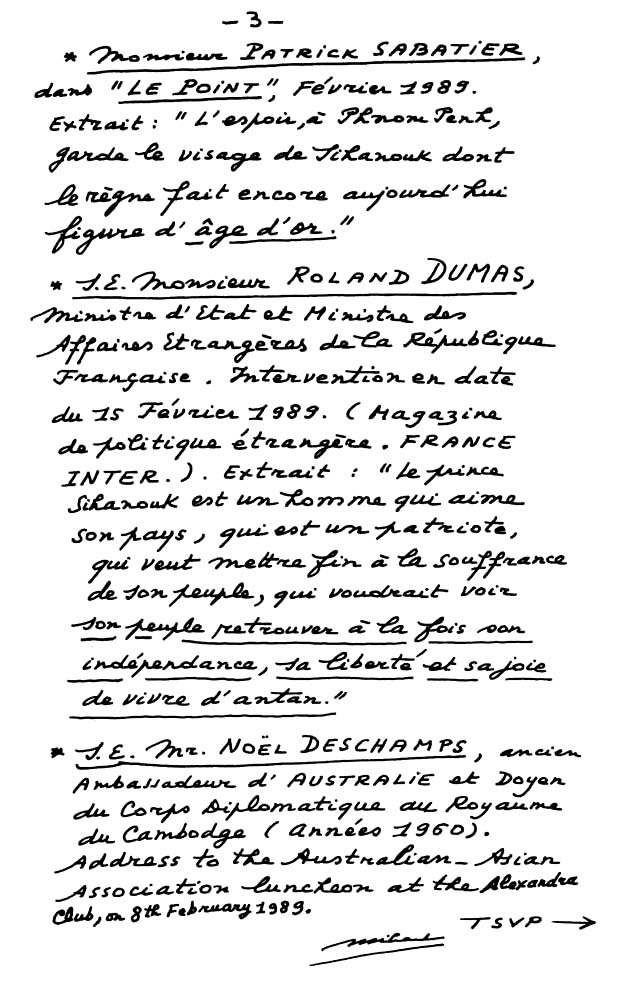 - 3 -
* Monsieur PATRICK SABATIER,
dans "LE POINT", Février 1989.
Extrait : "L'espoir, à Phnom Penh,
garde le visage de Sihanouk dont
le règne fait encore aujourd'hui
figure d'âge d'or."
* S.E. Monsieur ROLAND DUMAS,
Ministre d'Etat et Ministre des
Affaires Etrangères de la République
Française. Intervention en date
du 15 Février 1989. (Magazine
de politique étrangère. FRANCE
INTER.). Extrait : "Le prince
Sihanouk est un homme qui aime
son pays, qui est un patriote,
qui veut mettre fin à la souffrance
de son peuple, qui voudrait voir
son peuple retrouver à la fois son
indépendance, sa liberté et sa joie
de vivre d'antan."
* S.E. Mr. NOËL DESCHAMPS, ancien
Ambassadeur d'AUSTRALIE et Doyen
du Corps Diplomatique au Royaume
du Cambodge (Années 1960).
Address to the Australian-Asian
Association luncheon at the Alexandra
Club, on 8th February 1989.
TSVP →